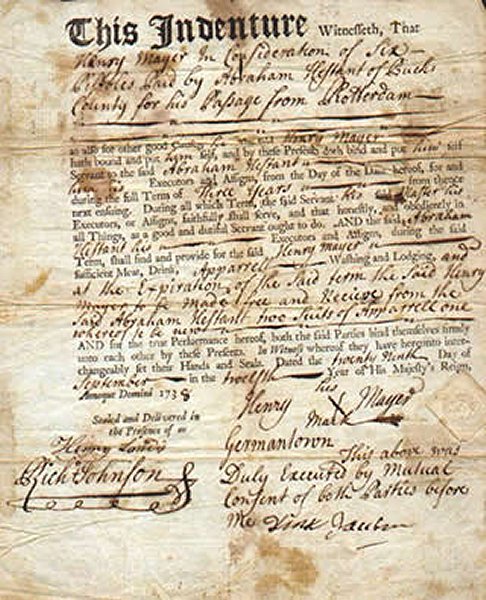 This Indenture Witnesseth, That
Henry Mayer In Consideration of Six
Pistoles Paid by Abraham Hestant of Bucks
County for his Passage from Rotterdam
as also for other good Causes he the said Henry Mayer
hath bound and put him self, and by these Presents doth bind and put him self
Servant to the said Abraham Hestant
him his Executors and Assigns, from the Day of the Date hereof, for and
during the full Term of Three Years from thence
next ensuing. During all which Term, the said Servant his said Master his
Executors, or Assigns, faithfully shall serve, and that honestly, and obediently in
all Things, as a good and dutiful Servant ought to do. AND the said Abraham
Hestant his Executors and Assigns, during the said
Term, shall find and provide for the said Henry Mayer
sufficient Meat, Drink, Apparrell Washing and Lodging, and
at the Expiration of the Said term the Said Henry
Mayer to be made free and Recieve from the
Said Abraham Hestant two Suits of Apparrell one
whereof to be new
AND for the true Performance hereof, both the said Parties bind themselves firmly
unto each other by these Presents. In Witness whereof they have hereunto inter-
changeably set their Hands and Seals. Dated the twenty Ninth Day of
September in the twelfth Year of His Majesty's Reign,
Annoque Domini 1738
his
Henry X Mayer
mark
Sealed and Delivered
in the Presence of us
Henry
Rich Johnson
Germantown
This above was
Duly Executed by Mutual
Consent of both Parties before
Me